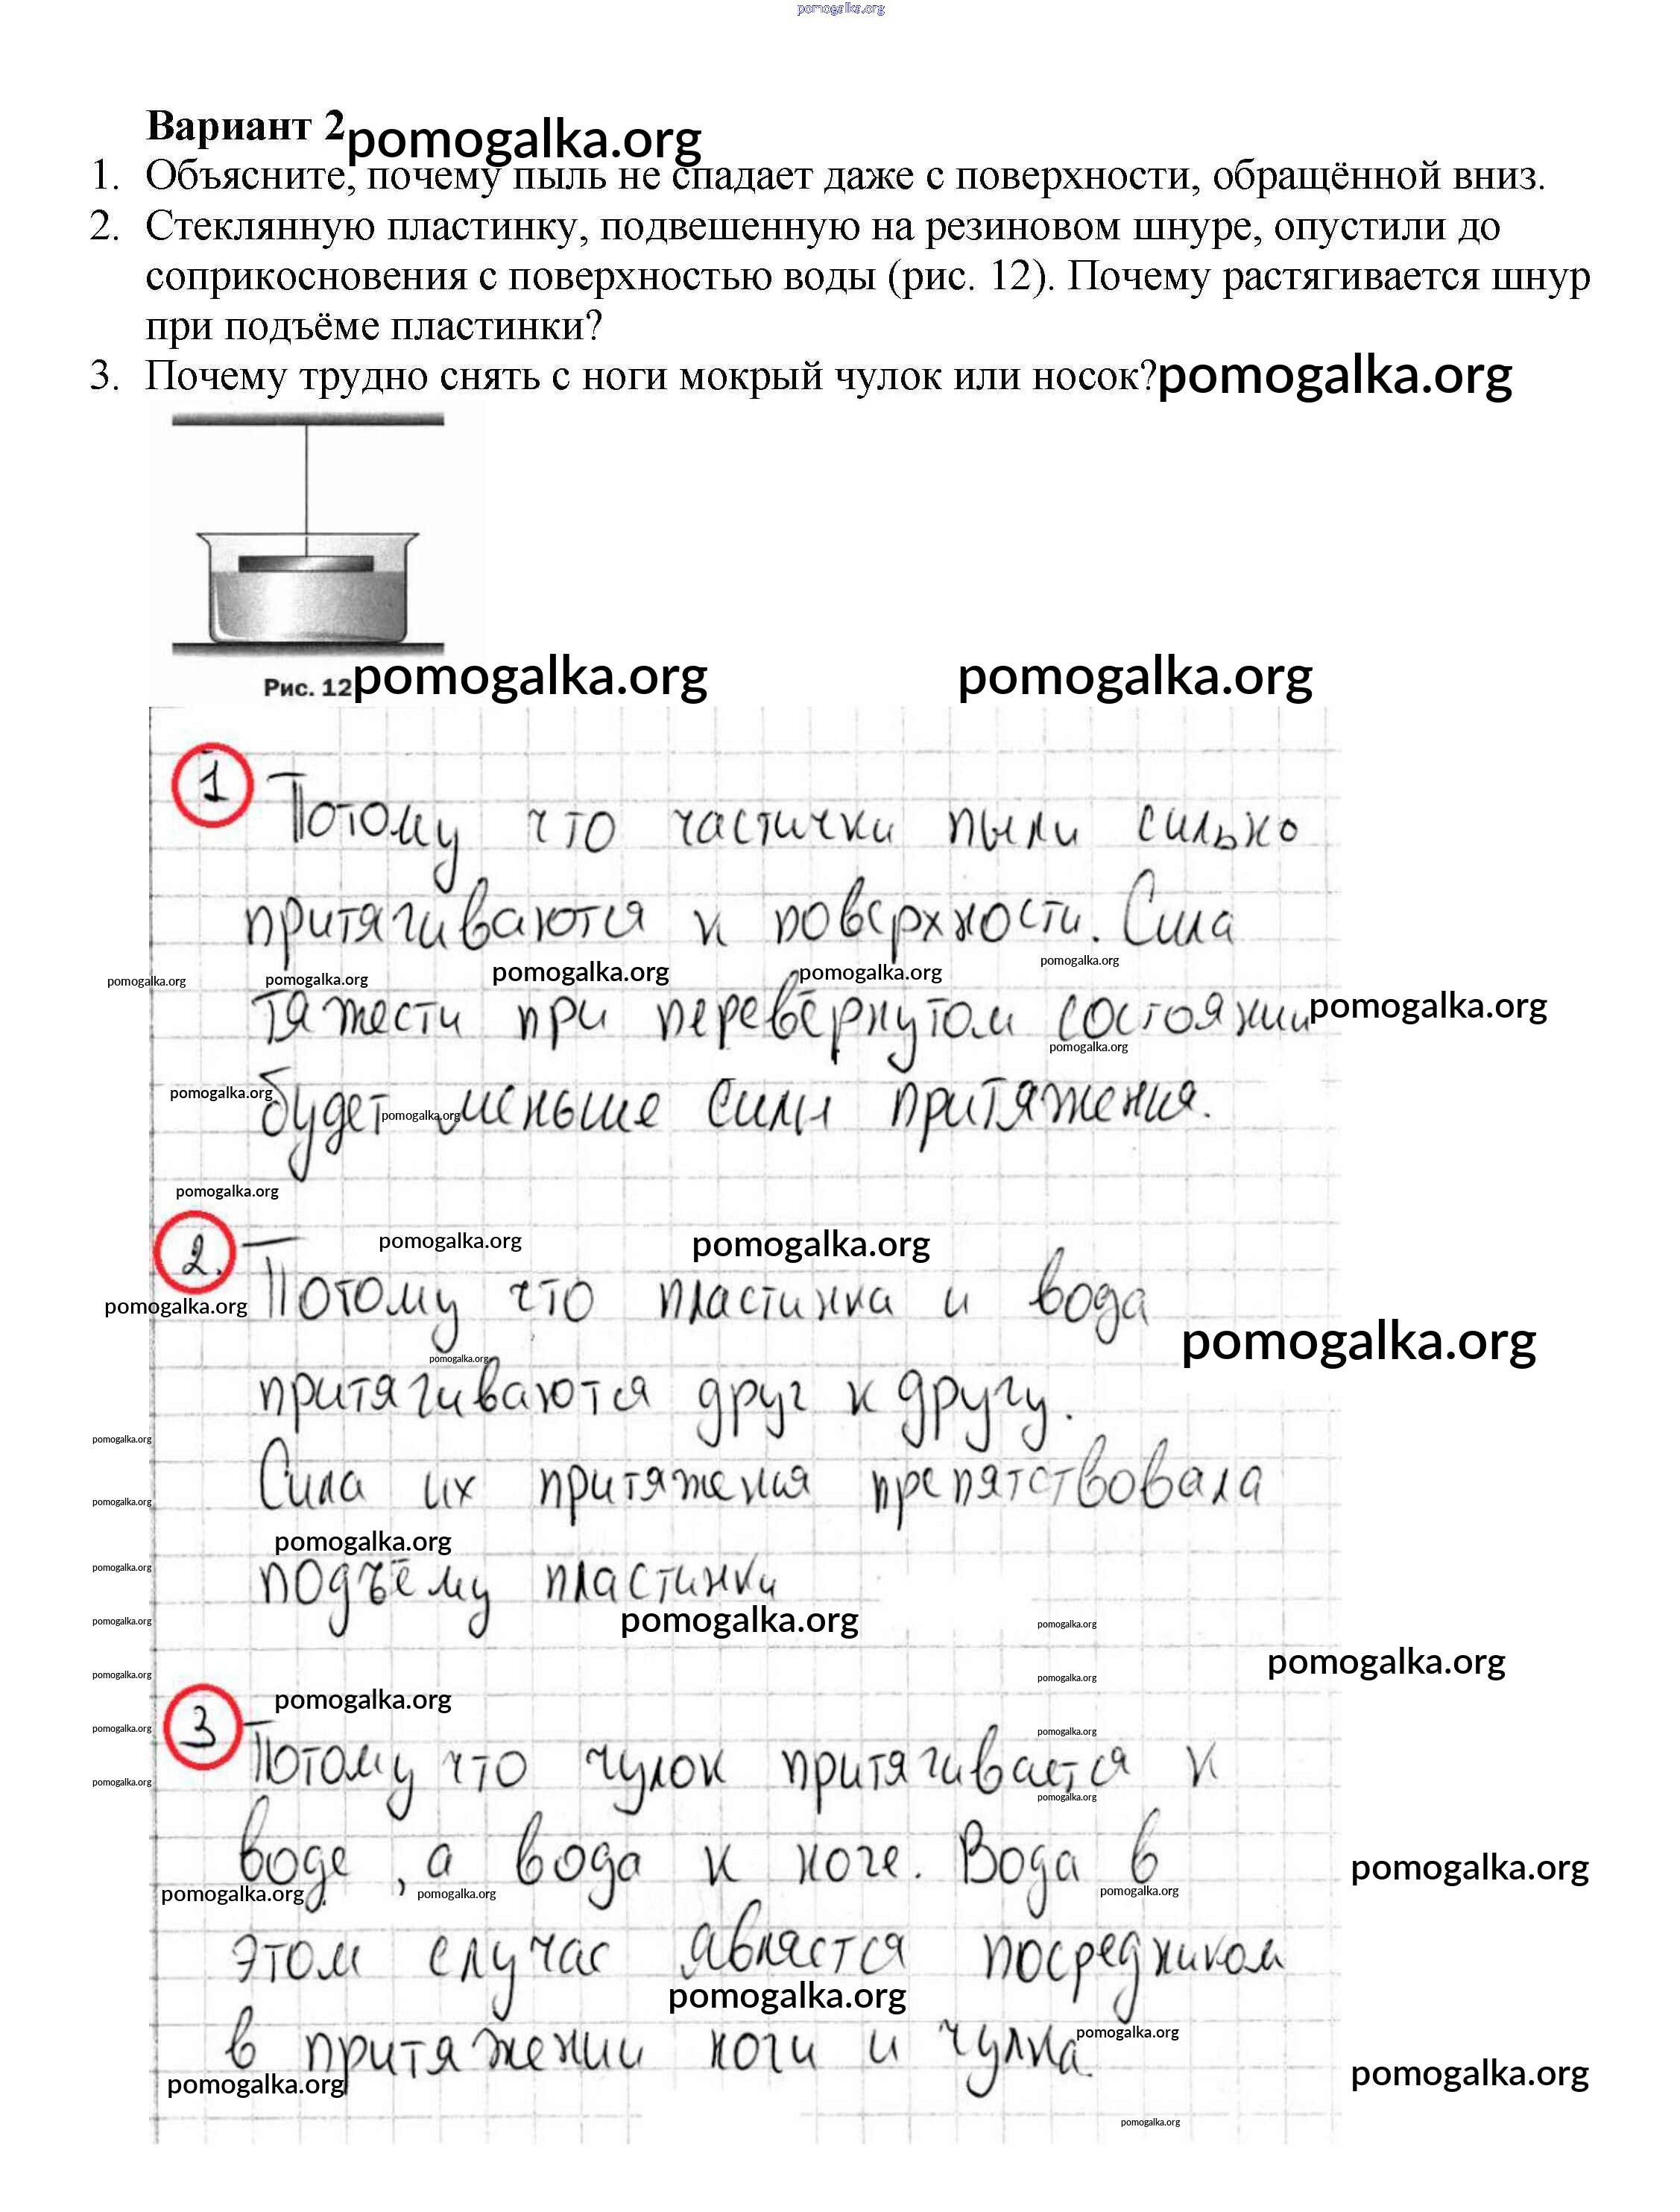 pomogalka.org
Вариант 2 pomogalka.org
1. Объясните, почему пыль не спадает даже с поверхности, обращённой вниз.
2. Стеклянную пластинку, подвешенную на резиновом шнуре, опустили до
соприкосновения с поверхностью воды (рис. 12). Почему растягивается шнур
при подъёме пластинки?
3. Почему трудно снять с ноги мокрый чулок или носок? pomogalka.org
Рис. 12 pomogalka.org pomogalka.org
1 Потому что частички пыли сильно
притягиваются к поверхности. Сила
pomogalka.org pomogalka.org pomogalka.org pomogalka.org pomogalka.org
тяжести при перевёрнутом состоянии pomogalka.org
pomogalka.org
pomogalka.org будет pomogalka.org меньше силы притяжения.
pomogalka.org
pomogalka.org pomogalka.org
2. Потому что пластинка и вода
pomogalka.org pomogalka.org
pomogalka.org
притягиваются друг к другу.
pomogalka.org
Сила их притяжения препятствовала
pomogalka.org
pomogalka.org
pomogalka.org подъёму пластинки
pomogalka.org pomogalka.org pomogalka.org
pomogalka.org
pomogalka.org pomogalka.org
pomogalka.org
pomogalka.org pomogalka.org
3 Потому что чулок притягивается к
pomogalka.org pomogalka.org
воде, а вода к ноге. Вода в pomogalka.org
pomogalka.org pomogalka.org pomogalka.org
этом случае является посредником
pomogalka.org
в притяжении ноги и чулка. pomogalka.org
pomogalka.org pomogalka.org
pomogalka.org